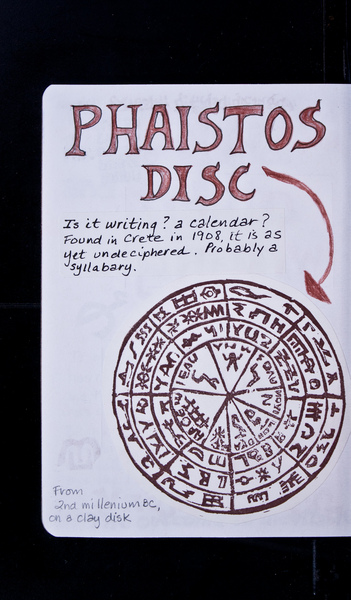 PHAISTOS
DISC
Is it writing? a calendar?
Found in Crete in 1908, it is as
yet undeciphered. Probably a
syllabary.
From
2nd millenium BC,
on a clay disk